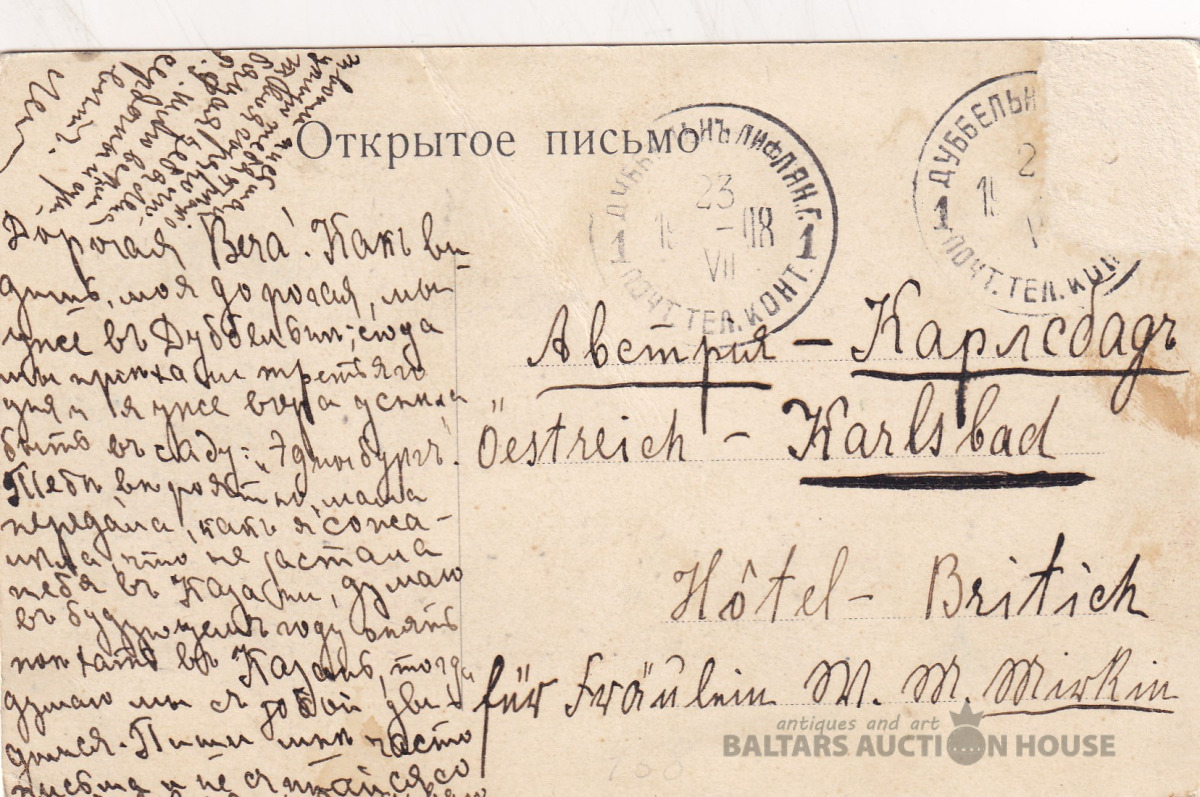 Открытое письмо
ДУББЕЛЬНЪ ЛИФЛЯН.Г.
23
19 -08
VII
1 1
ПОЧТ. ТЕЛ. КОНТ.
ДУББЕЛЬН
2
19
V
1
ПОЧТ. ТЕЛ. КОН
Дорогая Веча! Какъ ви-
дишь, моя дорогая, мы
уже въ Дуббельнѣ; сюда
мы приѣхали третьяго
дня и я уже вчера успѣла
быть въ саду: „Эдинбургъ".
Тебѣ вѣроятно, мама
передала, какъ я сожа-
лѣла, что не застала
тебя въ Казани, думаю
въ будующемъ году опять
поѣхать въ Казань, тогда
думаю мы съ тобой уви-
димся. Пиши мнѣ часто
письма и не считайся со
Австрия – Карлсбадъ
Öestreich – Karlsbad
Hôtel – Britich
für Fräulein W. M. Mirkin
antiques and art
BALTARS AUCTION HOUSE
100